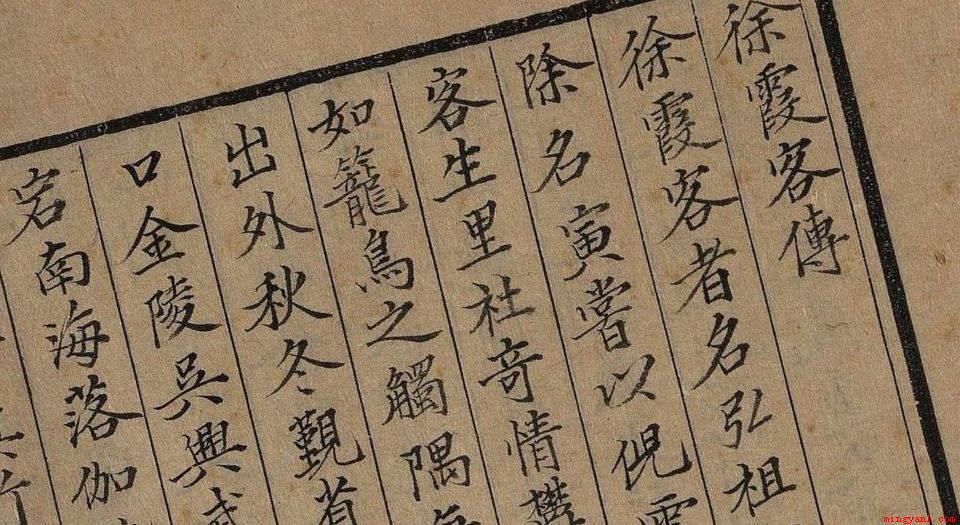 徐霞客傳
徐霞客者名弘祖
除名寅嘗以倪雲
客生里社奇情
如籠鳥之觸隅每
出外秋冬覲省
口金陵吳興
宕南海落伽